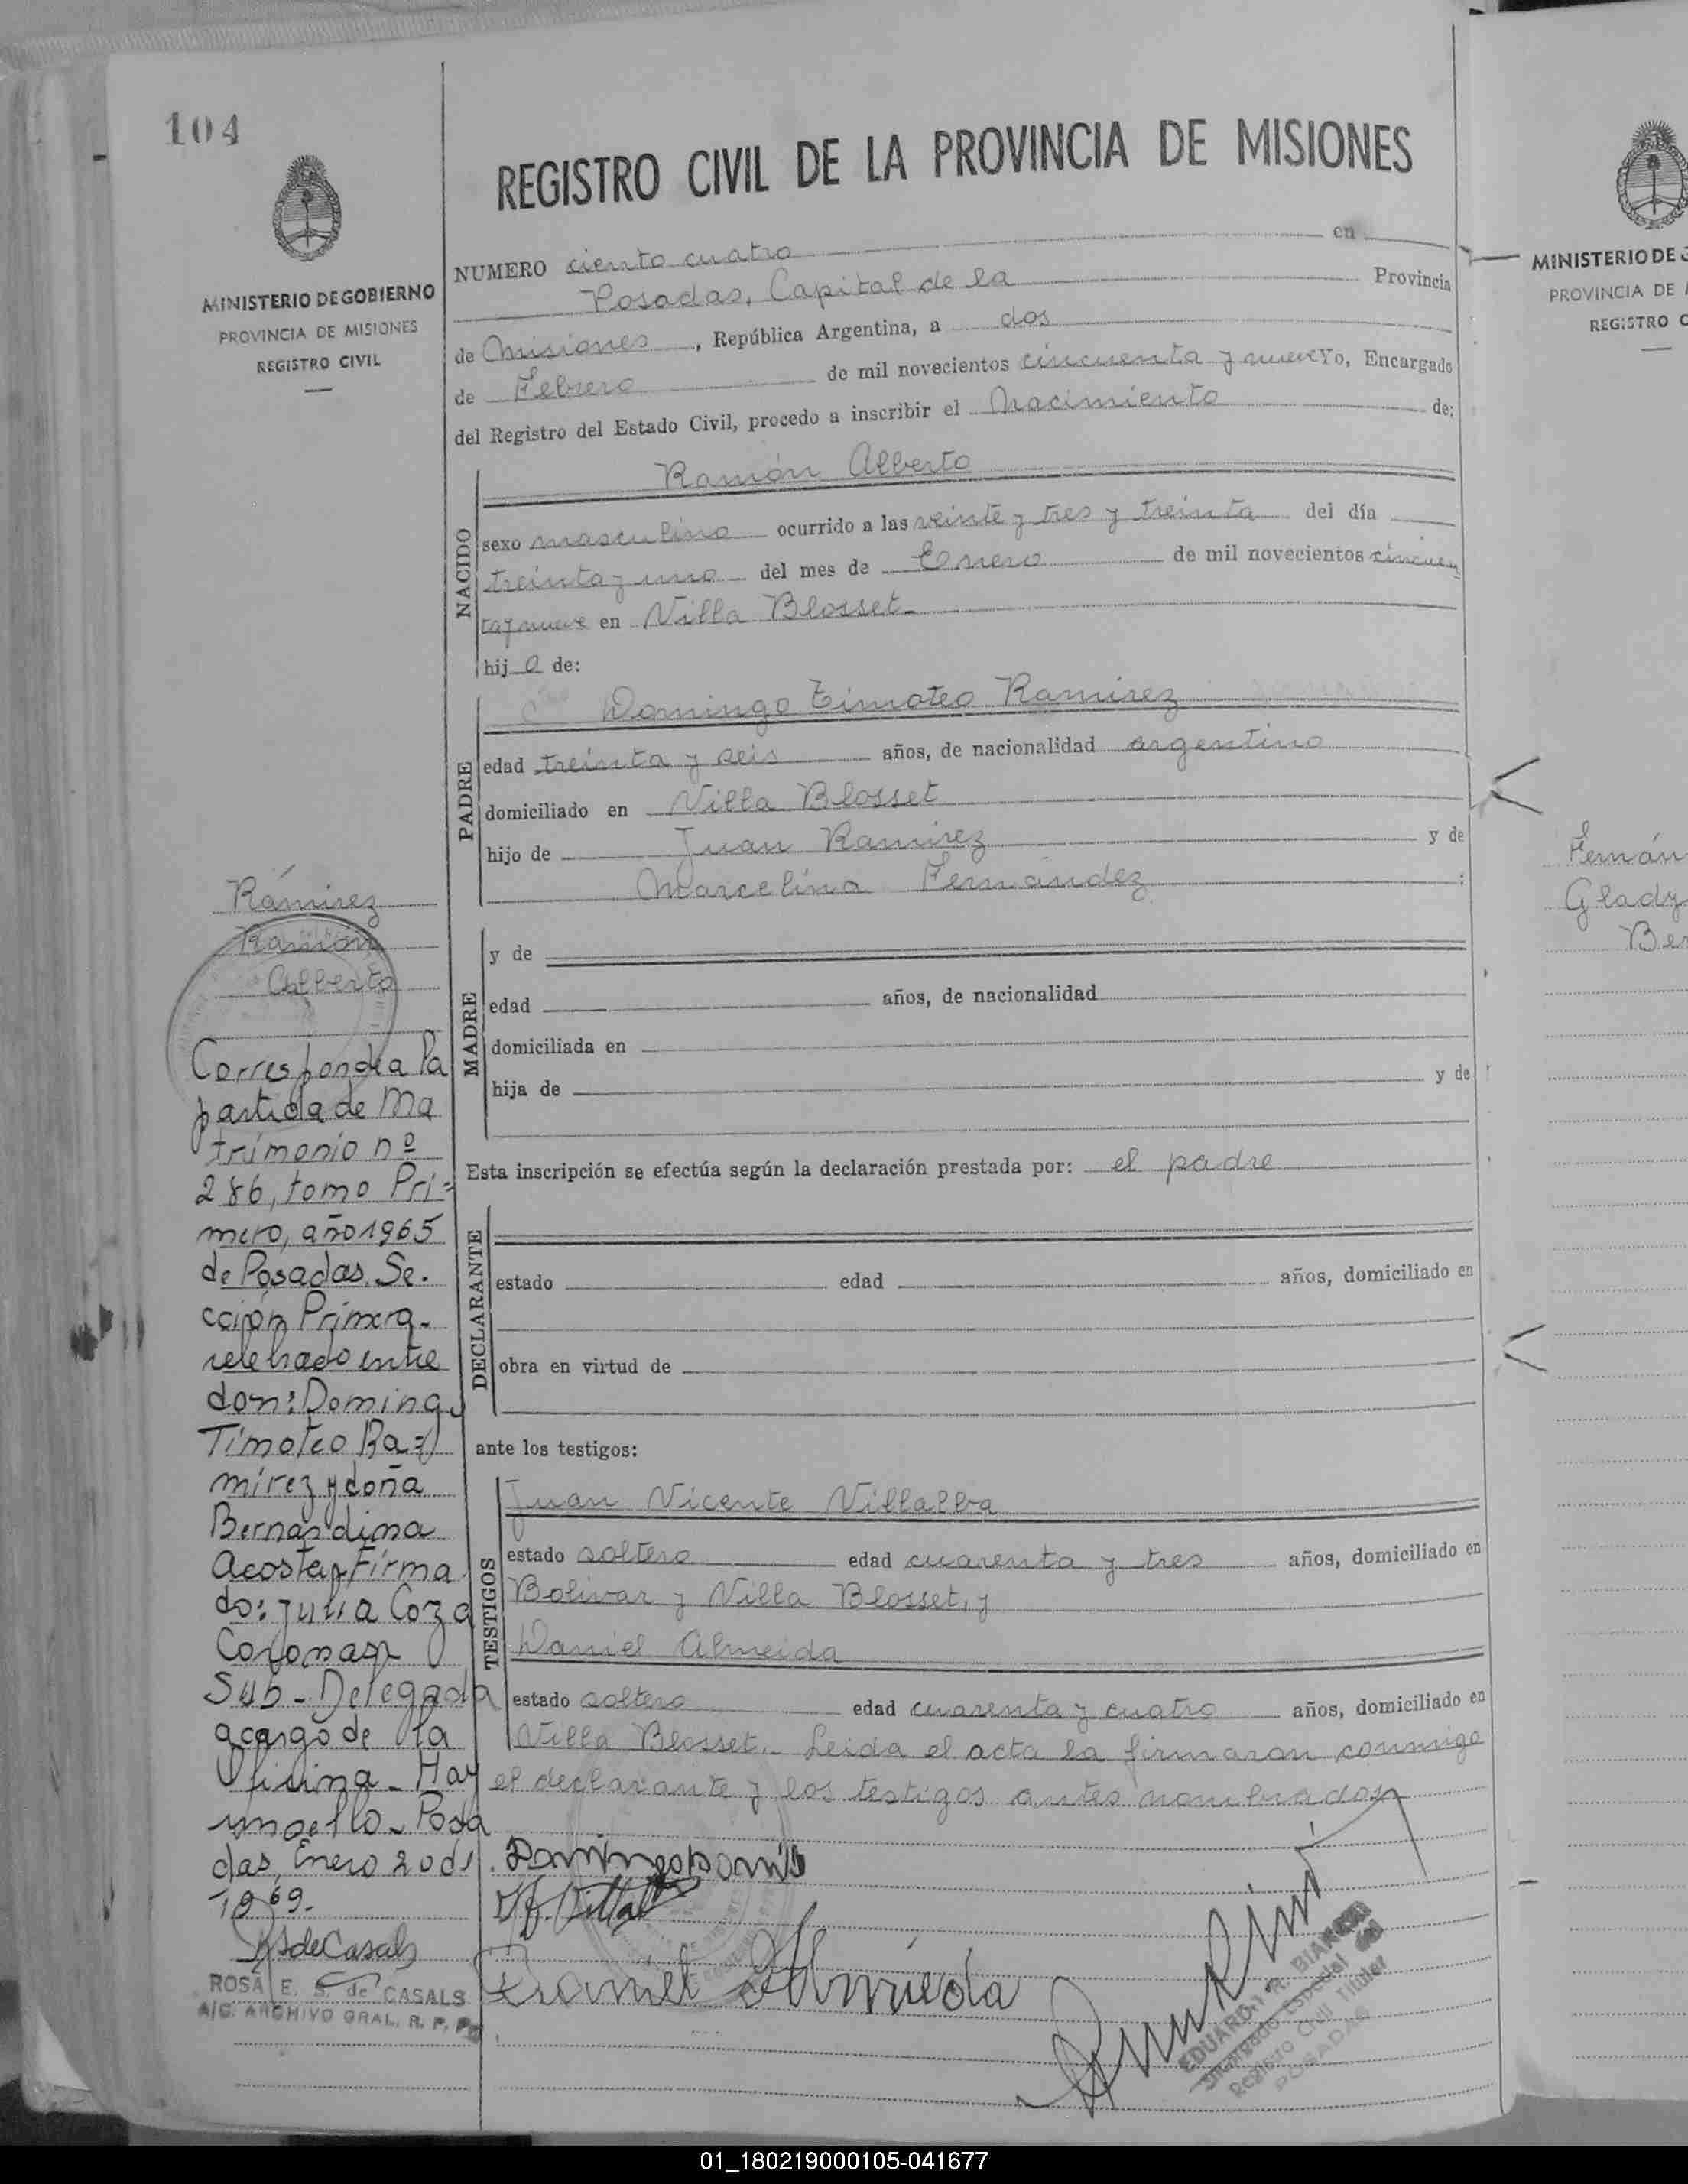 104
MINISTERIO DE GOBIERNO
PROVINCIA DE MISIONES
REGISTRO CIVIL
REGISTRO CIVIL DE LA PROVINCIA DE MISIONES
NUMERO ciento cuatro en
Posadas, Capital de la Provincia
de Misiones, República Argentina, a dos
de Febrero de mil novecientos cincuenta y nueve Yo, Encargado
del Registro del Estado Civil, procedo a inscribir el Nacimiento de:
NACIDO
Ramón Alberto
sexo masculino ocurrido a las veinte y tres y treinta del día
treinta y uno del mes de Enero de mil novecientos cincuen
ta y nueve en Villa Blosset-
hij o de:
PADRE
Domingo Timoteo Ramirez
edad treinta y seis años, de nacionalidad argentino
domiciliado en Villa Blosset
hijo de Juan Ramirez y de
Marcelina Fernández :
MADRE
y de
edad años, de nacionalidad
domiciliada en
hija de y de
Esta inscripción se efectúa según la declaración prestada por: el padre
DECLARANTE
estado edad años, domiciliado en
obra en virtud de
ante los testigos:
TESTIGOS
Juan Vicente Villalba
estado soltero edad cuarenta y tres años, domiciliado en
Bolivar y Villa Blosset, y
Daniel Almeida
estado soltero edad cuarenta y cuatro años, domiciliado en
Villa Blosset.- Leida el acta la firmaron conmigo
el declarante y los testigos antes nombrados
Daniel Almieda
EDUARDO R.
Encargado Especial
Registro Civil Titular
POSADAS
Ramirez
Ramón
Alberto
Corresponde a la
partida de Ma
trimonio nº
286, tomo Pri=
mero, año 1965
de Posadas. Se.
cción Primera-
celebrado entre
don: Domingo
Timoteo Ra=
mirez y doña
Bernardina
Acosta Firma
do: Julia
Sub-Delegada
a cargo de la
Oficina- Hay
un sello- Posa
das, Enero 20 d
1969.-
SdeCasals
ROSA E. S. de CASALS
A/C. ARCHIVO GRAL. R. P.
MINISTERIO DE
PROVINCIA DE
REGISTRO C
Fernán
Glady
Ber
01_180219000105-041677